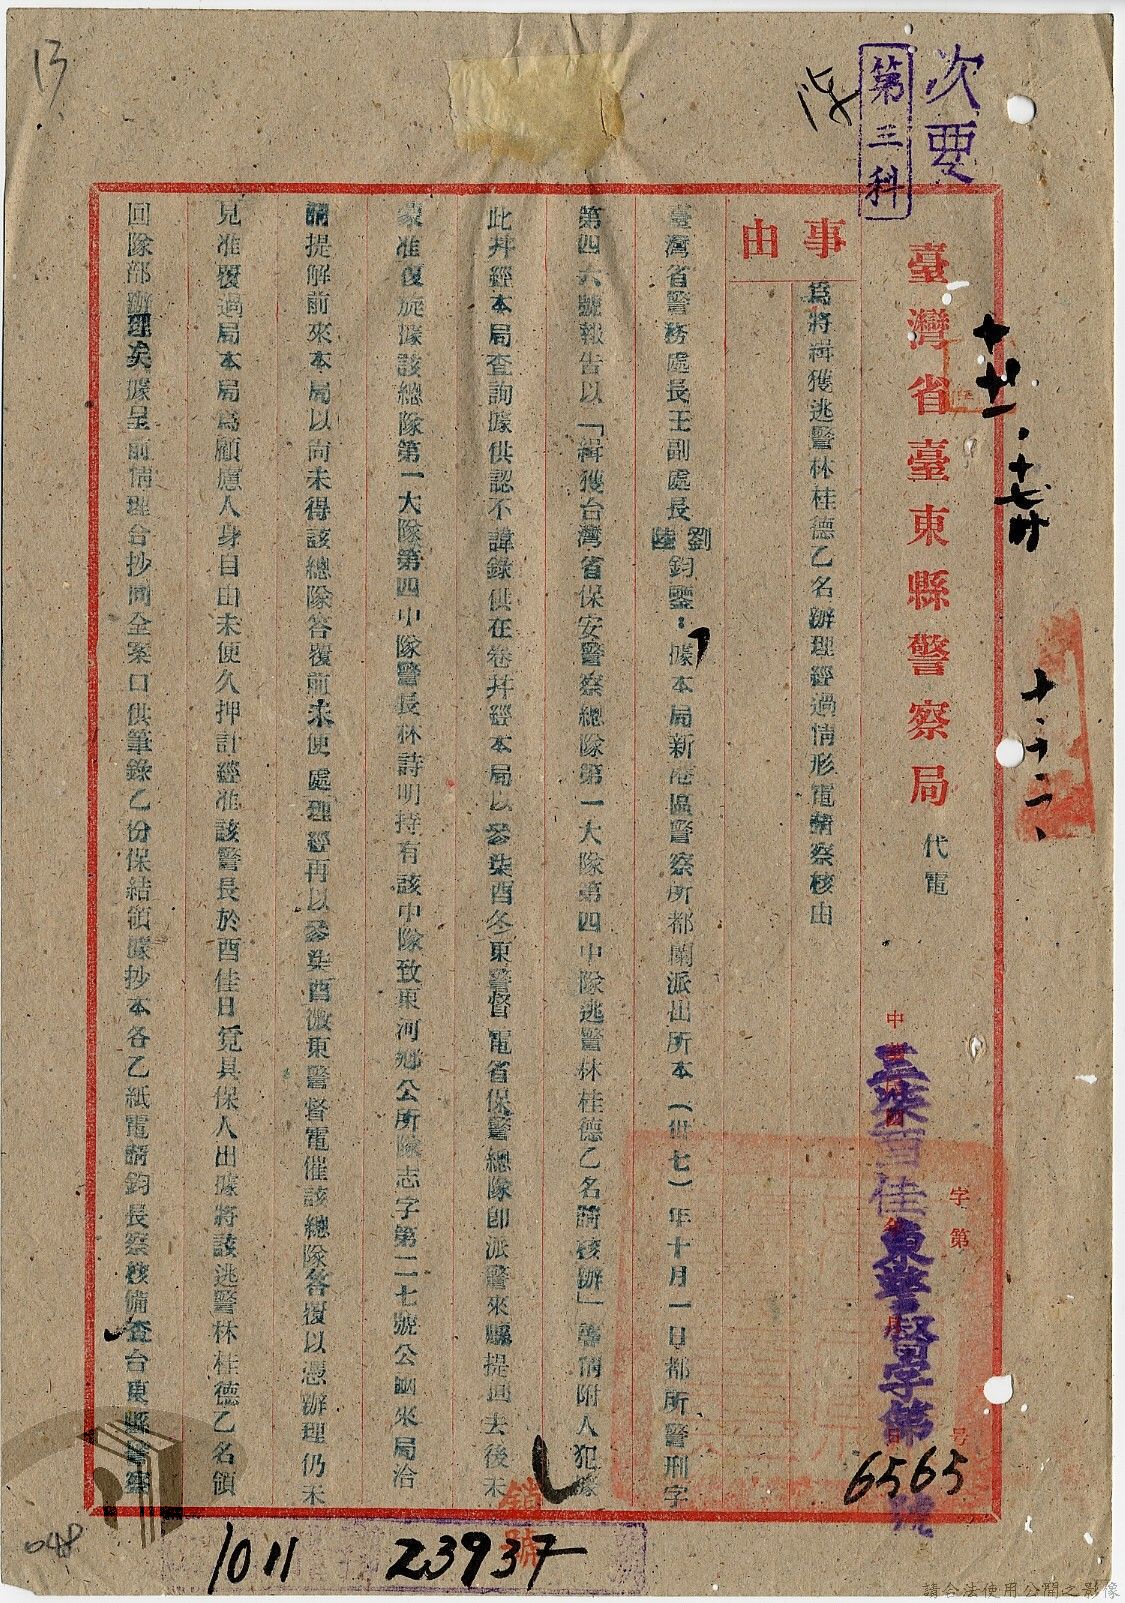 次要
第三科
13
臺灣省臺東縣警察局 代電
中
字第 号
三柒酉佳東警督字第 6565 號
事由
為將緝獲逃警林桂德乙名辦理經過情形電請察核由
臺灣省警務處長王副處長劉鈞鑒:據本局新港區警察所都蘭派出所本(卅七)年十月一日都所警刑字
第四六號報告以「緝獲台灣省保安警察總隊第一大隊第四中隊逃警林桂德乙名請核辦」等情附人犯據
此幷經本局查詢據供認不諱錄供在卷幷經本局以叁柒酉冬東警督電省保警總隊卽派警來縣提回去後未
蒙准復旋據該總隊第一大隊第四中隊警長林詩明持有該中隊致東河鄉公所陳志字第二七號公函來局洽
請提解前來本局以尚未得該總隊答覆前未便處理經再以叁柒酉微東警督電催該總隊答覆以憑辦理仍未
見准覆過局本局為顧慮人身自由未便久押計經准該警長於酉佳日覓具保人出據將該逃警林桂德乙名領
回隊部辦理矣據呈前情理合抄同全案口供筆錄乙份保結領據抄本各乙紙電請鈞長察核備查台東縣警察
鎖號
1011 23937
048
請合法使用公開之影像